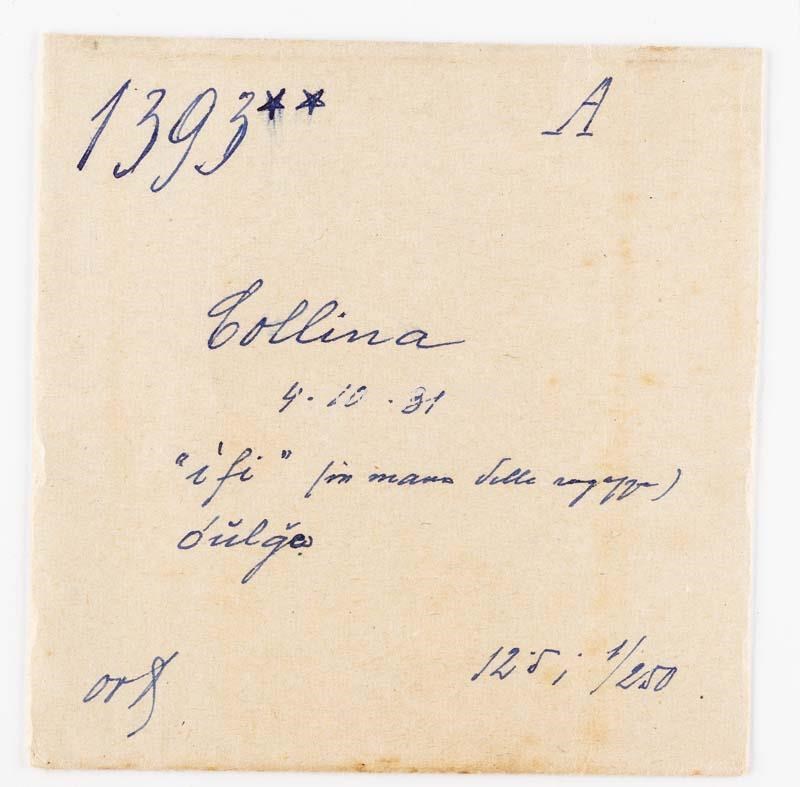 1393** A
Collina
4. 10. 31
"ìfi" (in mano delle ragazze)
óŭlğa
12,5; 1/250